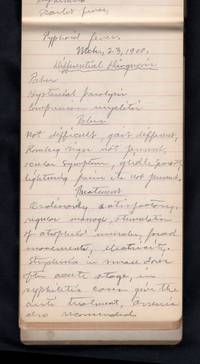 Scarlet fever,
Typhoid fever.
Mch. 23, 1900.
Differential Diagnosis
Tabes
Hysterical paralysis
Compression myelitis
Tabes
Not difficult, gait different,
Romberg sign not present,
ocular symptom, girdle pains,
lightning pains etc not present.
Treatment
Ordinarily satisfactory,
regular massage, stimulation
of atrophied muscles, faradic
movements, electricity.
Strychnia in small doses
after acute stage, in
syphilitic cases give the
anti treatment, arsenic
also recommended.